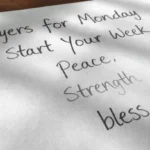 yers for Monday
Start Your Week
Peace,
Strength
bless